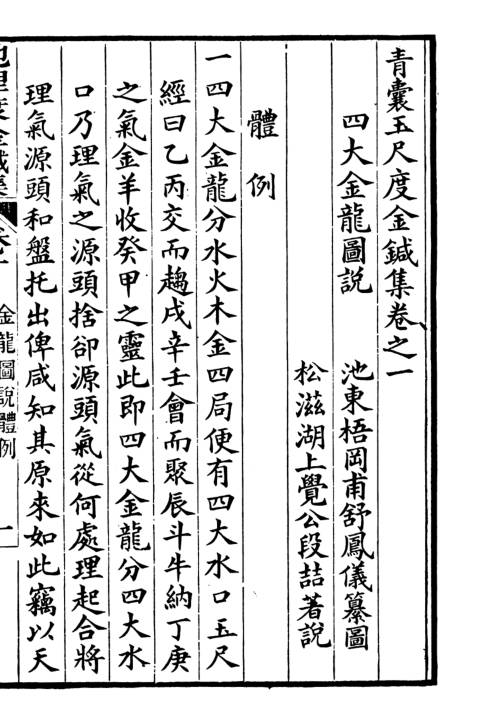 青囊玉尺度金鍼集卷之一
四大金龍圖說　池東梧岡甫舒鳳儀纂圖
松滋湖上覺公段喆著說
體例
一四大金龍分水火木金四局便有四大水口玉尺
經曰乙丙交而趨戌辛壬會而聚辰斗牛納丁庚
之氣金羊收癸甲之靈此即四大金龍分四大水
口乃理氣之源頭捨卻源頭氣從何處理起合將
理氣源頭和盤托出俾咸知其原來如此竊以天
地理度金鍼集　卷之一　金龍圖說體例　一